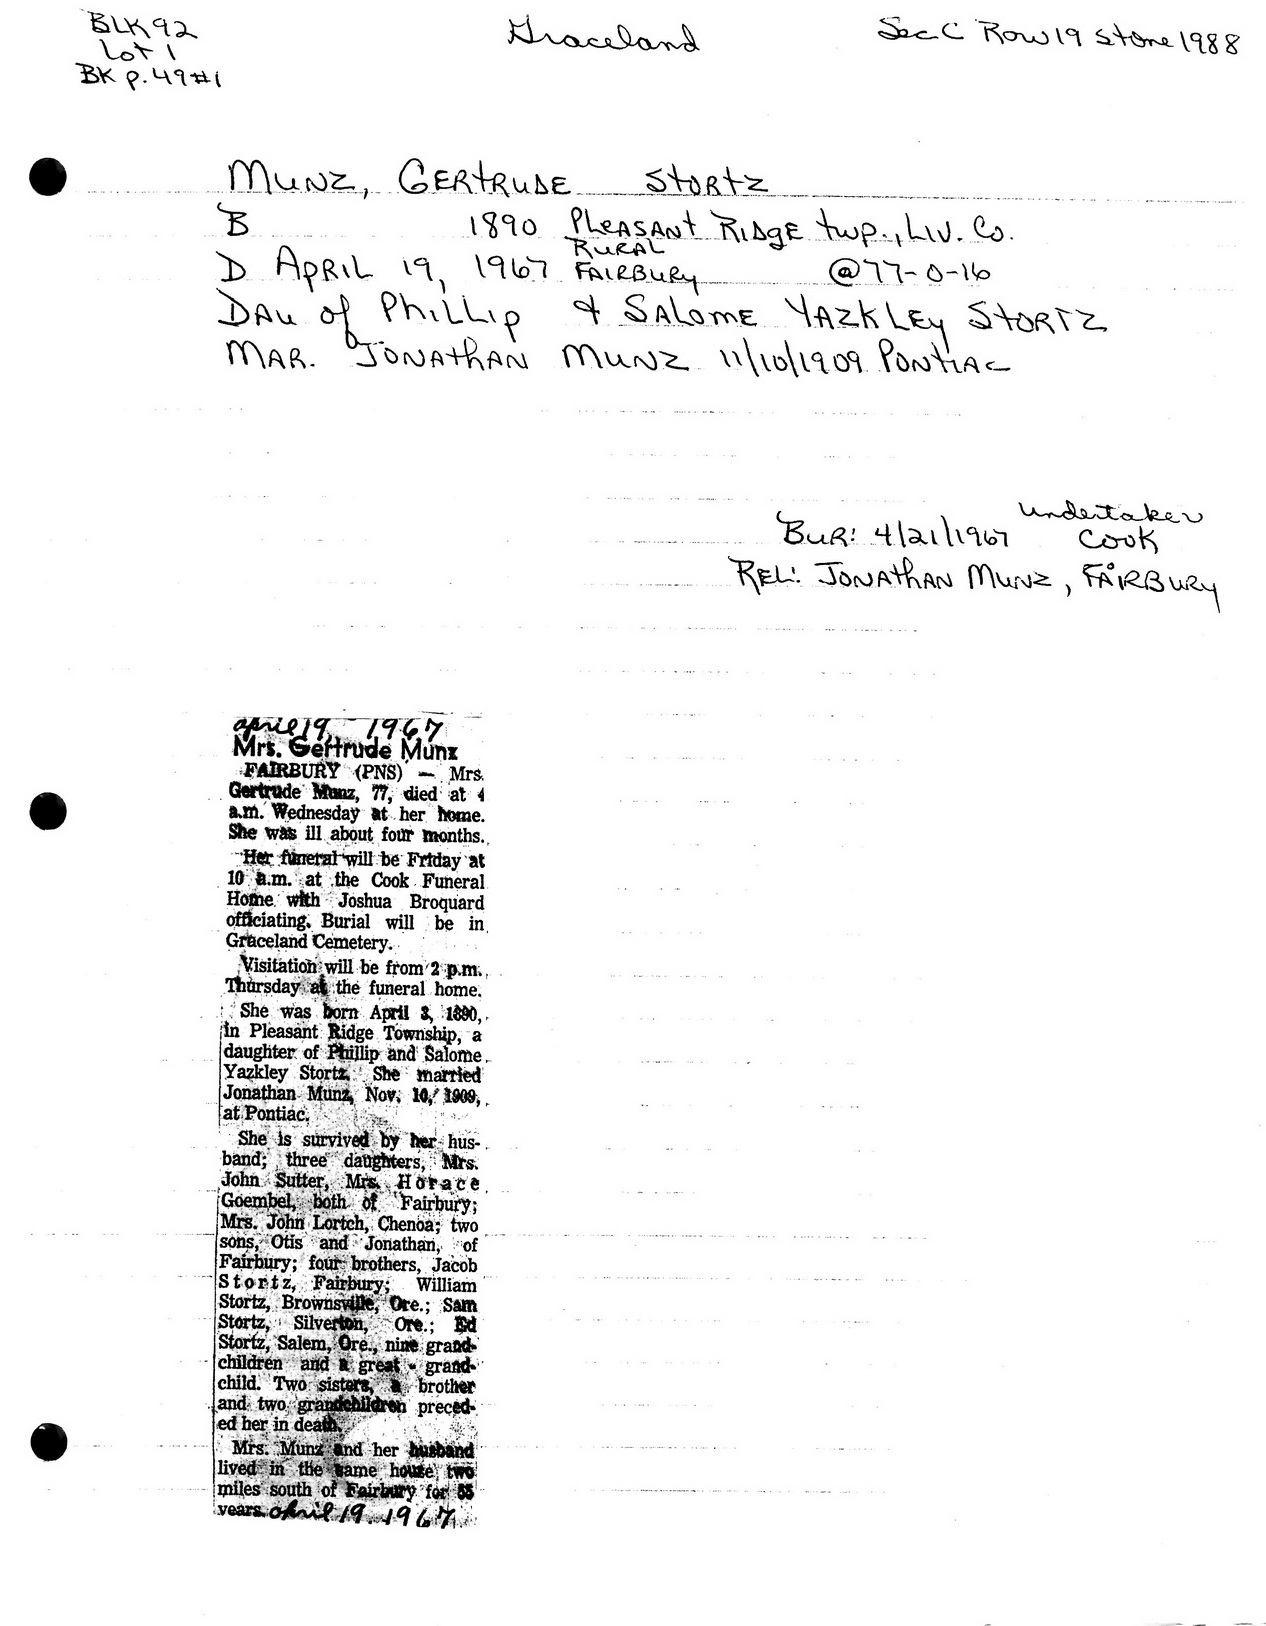 BLK 92
Lot 1
BK p. 49 #1
Graceland
Sec C Row 19 Stone 1988
MUNZ, GERTRUDE STORTZ
B 1890 PLEASANT RIDGE twp., LIV. Co.
D APRIL 19, 1967 RURAL FAIRBURY @77-0-16
DAU of PHILLIP & SALOME YAZKLEY STORTZ
MAR. JONATHAN MUNZ 11/10/1909 PONTIAC
undertaker
BUR: 4/21/1967 COOK
REL: JONATHAN MUNZ, FAIRBURY
april 19 - 1967
Mrs. Gertrude Munz
FAIRBURY (PNS) — Mrs.
Gertrude Munz, 77, died at 4
a.m. Wednesday at her home.
She was ill about four months.
Her funeral will be Friday at
10 a.m. at the Cook Funeral
Home with Joshua Broquard
officiating. Burial will be in
Graceland Cemetery.
Visitation will be from 2 p.m.
Thursday at the funeral home.
She was born April 3, 1890,
in Pleasant Ridge Township, a
daughter of Phillip and Salome
Yazkley Stortz. She married
Jonathan Munz, Nov. 10, 1909,
at Pontiac.
She is survived by her hus-
band; three daughters, Mrs.
John Sutter, Mrs. Horace
Goembel, both of Fairbury;
Mrs. John Lortch, Chenoa; two
sons, Otis and Jonathan, of
Fairbury; four brothers, Jacob
Stortz, Fairbury; William
Stortz, Brownsville, Ore.; Sam
Stortz, Silverton, Ore.; Ed
Stortz, Salem, Ore., nine grand-
children and a great - grand-
child. Two sisters, a brother
and two grandchildren preced-
ed her in death.
Mrs. Munz and her husband
lived in the same house two
miles south of Fairbury for 55
years. april 19. 1967